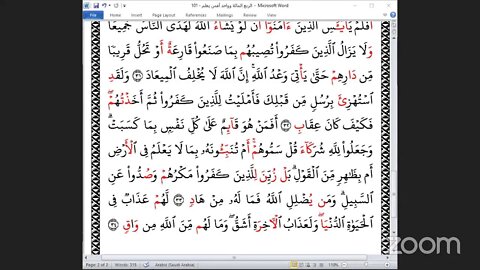 الربع الثالثة وواحد أفمن يعلم - 101 - Microsoft Word
File Home Insert Page Layout References Mailings Review View
أَفَلَمْ يَاْيْـَٔسِ ٱلَّذِينَ ءَامَنُوٓا۟ أَن لَّوْ يَشَآءُ ٱللَّهُ لَهَدَى ٱلنَّاسَ جَمِيعًا
وَلَا يَزَالُ ٱلَّذِينَ كَفَرُوا۟ تُصِيبُهُم بِمَا صَنَعُوا۟ قَارِعَةٌ أَوْ تَحُلُّ قَرِيبًا
مِّن دَارِهِمْ حَتَّىٰ يَأْتِىَ وَعْدُ ٱللَّهِ ۚ إِنَّ ٱللَّهَ لَا يُخْلِفُ ٱلْمِيعَادَ ٣١ وَلَقَدِ
ٱسْتُهْزِئَ بِرُسُلٍ مِّن قَبْلِكَ فَأَمْلَيْتُ لِلَّذِينَ كَفَرُوا۟ ثُمَّ أَخَذْتُهُمْ ۖ
فَكَيْفَ كَانَ عِقَابِ ٣٢ أَفَمَنْ هُوَ قَآئِمٌ عَلَىٰ كُلِّ نَفْسٍۭ بِمَا كَسَبَتْ ۗ
وَجَعَلُوا۟ لِلَّهِ شُرَكَآءَ قُلْ سَمُّوهُمْ ۚ أَمْ تُنَبِّـُٔونَهُۥ بِمَا لَا يَعْلَمُ فِى ٱلْأَرْضِ
أَم بِظَٰهِرٍ مِّنَ ٱلْقَوْلِ ۗ بَلْ زُيِّنَ لِلَّذِينَ كَفَرُوا۟ مَكْرُهُمْ وَصُدُّوا۟ عَنِ
ٱلسَّبِيلِ ۗ وَمَن يُضْلِلِ ٱللَّهُ فَمَا لَهُۥ مِنْ هَادٍ ٣٣ لَّهُمْ عَذَابٌ فِى
ٱلْحَيَوٰةِ ٱلدُّنْيَا ۖ وَلَعَذَابُ ٱلْـَٔاخِرَةِ أَشَقُّ ۖ وَمَا لَهُم مِّنَ ٱللَّهِ مِن وَاقٍ ٣٤
Page: 2 of 2 Words: 315 Arabic (Saudi Arabia) 110%
zoom